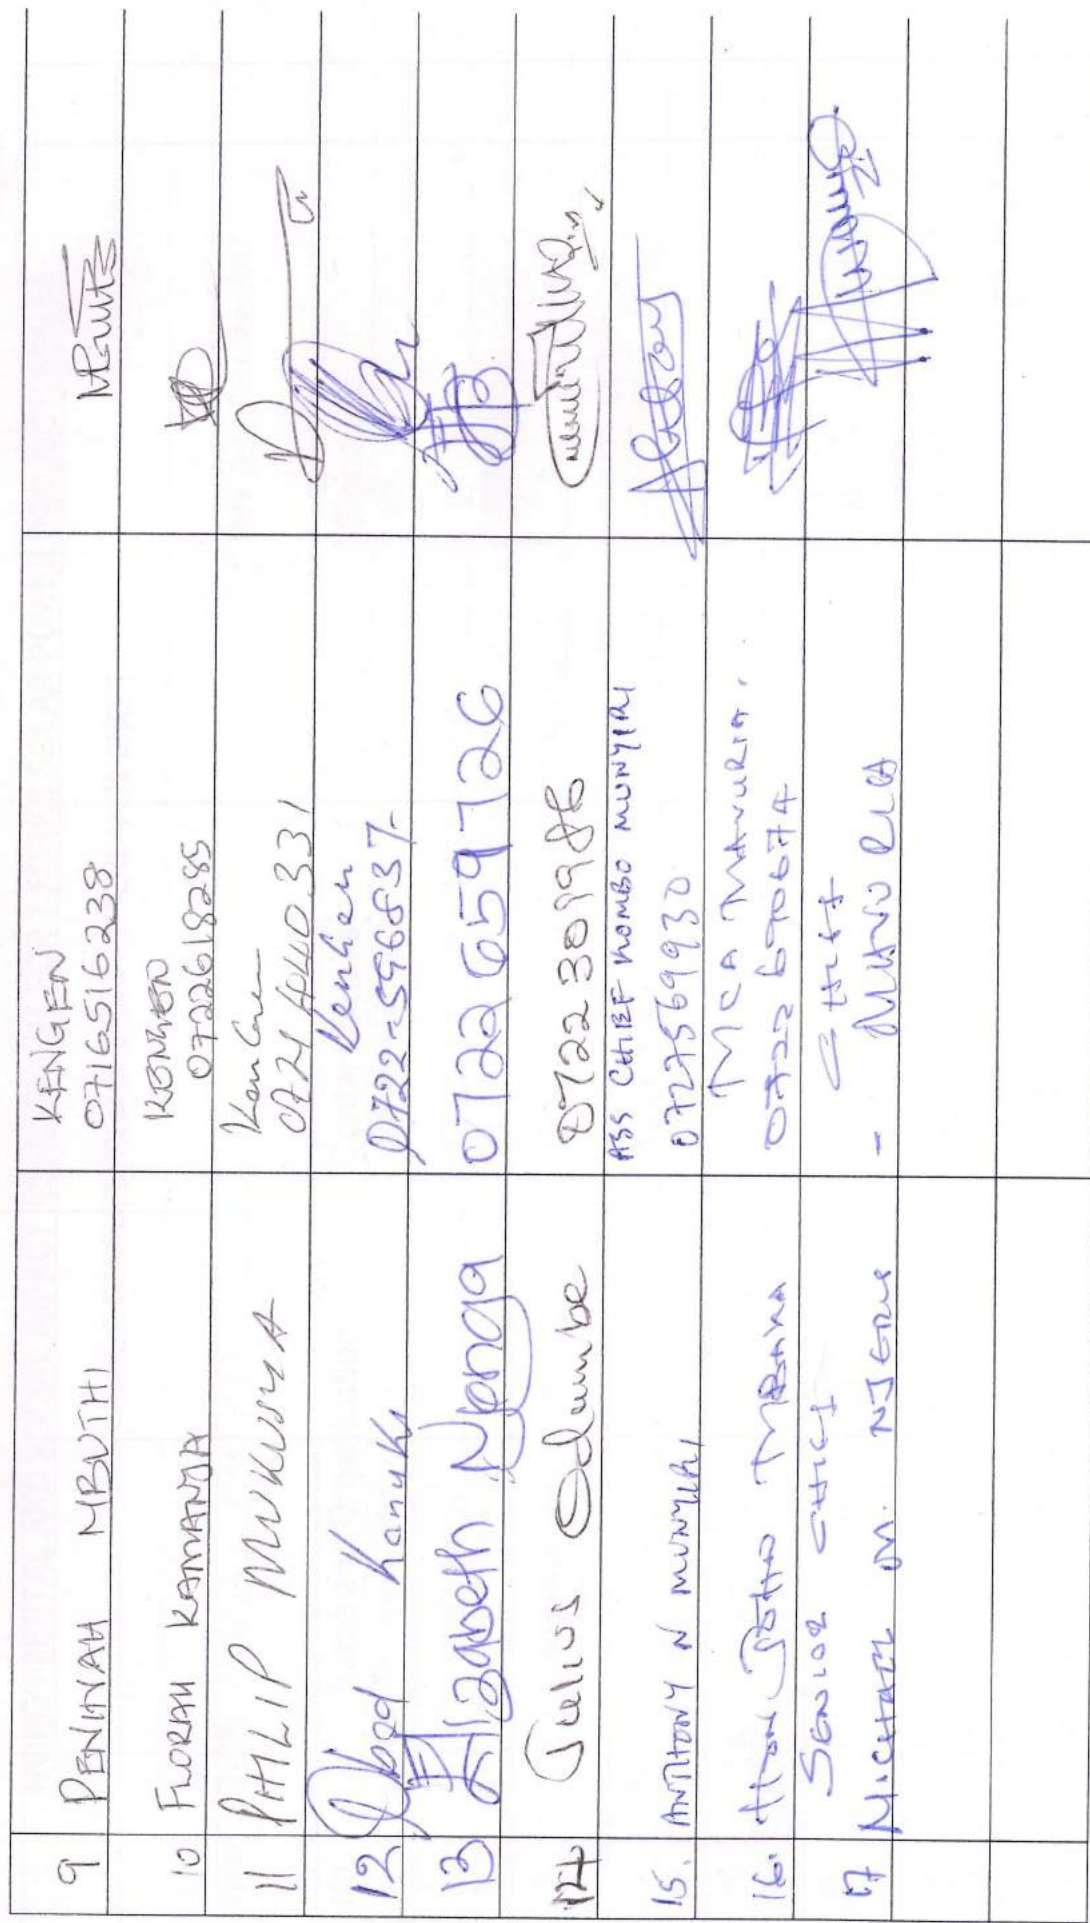 9 PENINAH MBUTHI KENGEN
0716516238
10 FLORAH KAMANJA KENGEN
0722618285
11 PHILIP MUKUSYA KenGen
0721440331
12 Obed Kanuki KenGen
0722-596837-
13 Elizabeth Njenga 0722659726
14 Julius Odumbe 0722309986
15. ANTHONY N MUNYIRI ASS CHIEF KOMBO MUNYIRI
0727569930
16. Hon MBAKA MCA MAVURIA.
0722690674
SENIOR CHIEF CHIEF
17 MICHAEL M. NJERU - MAVURIA